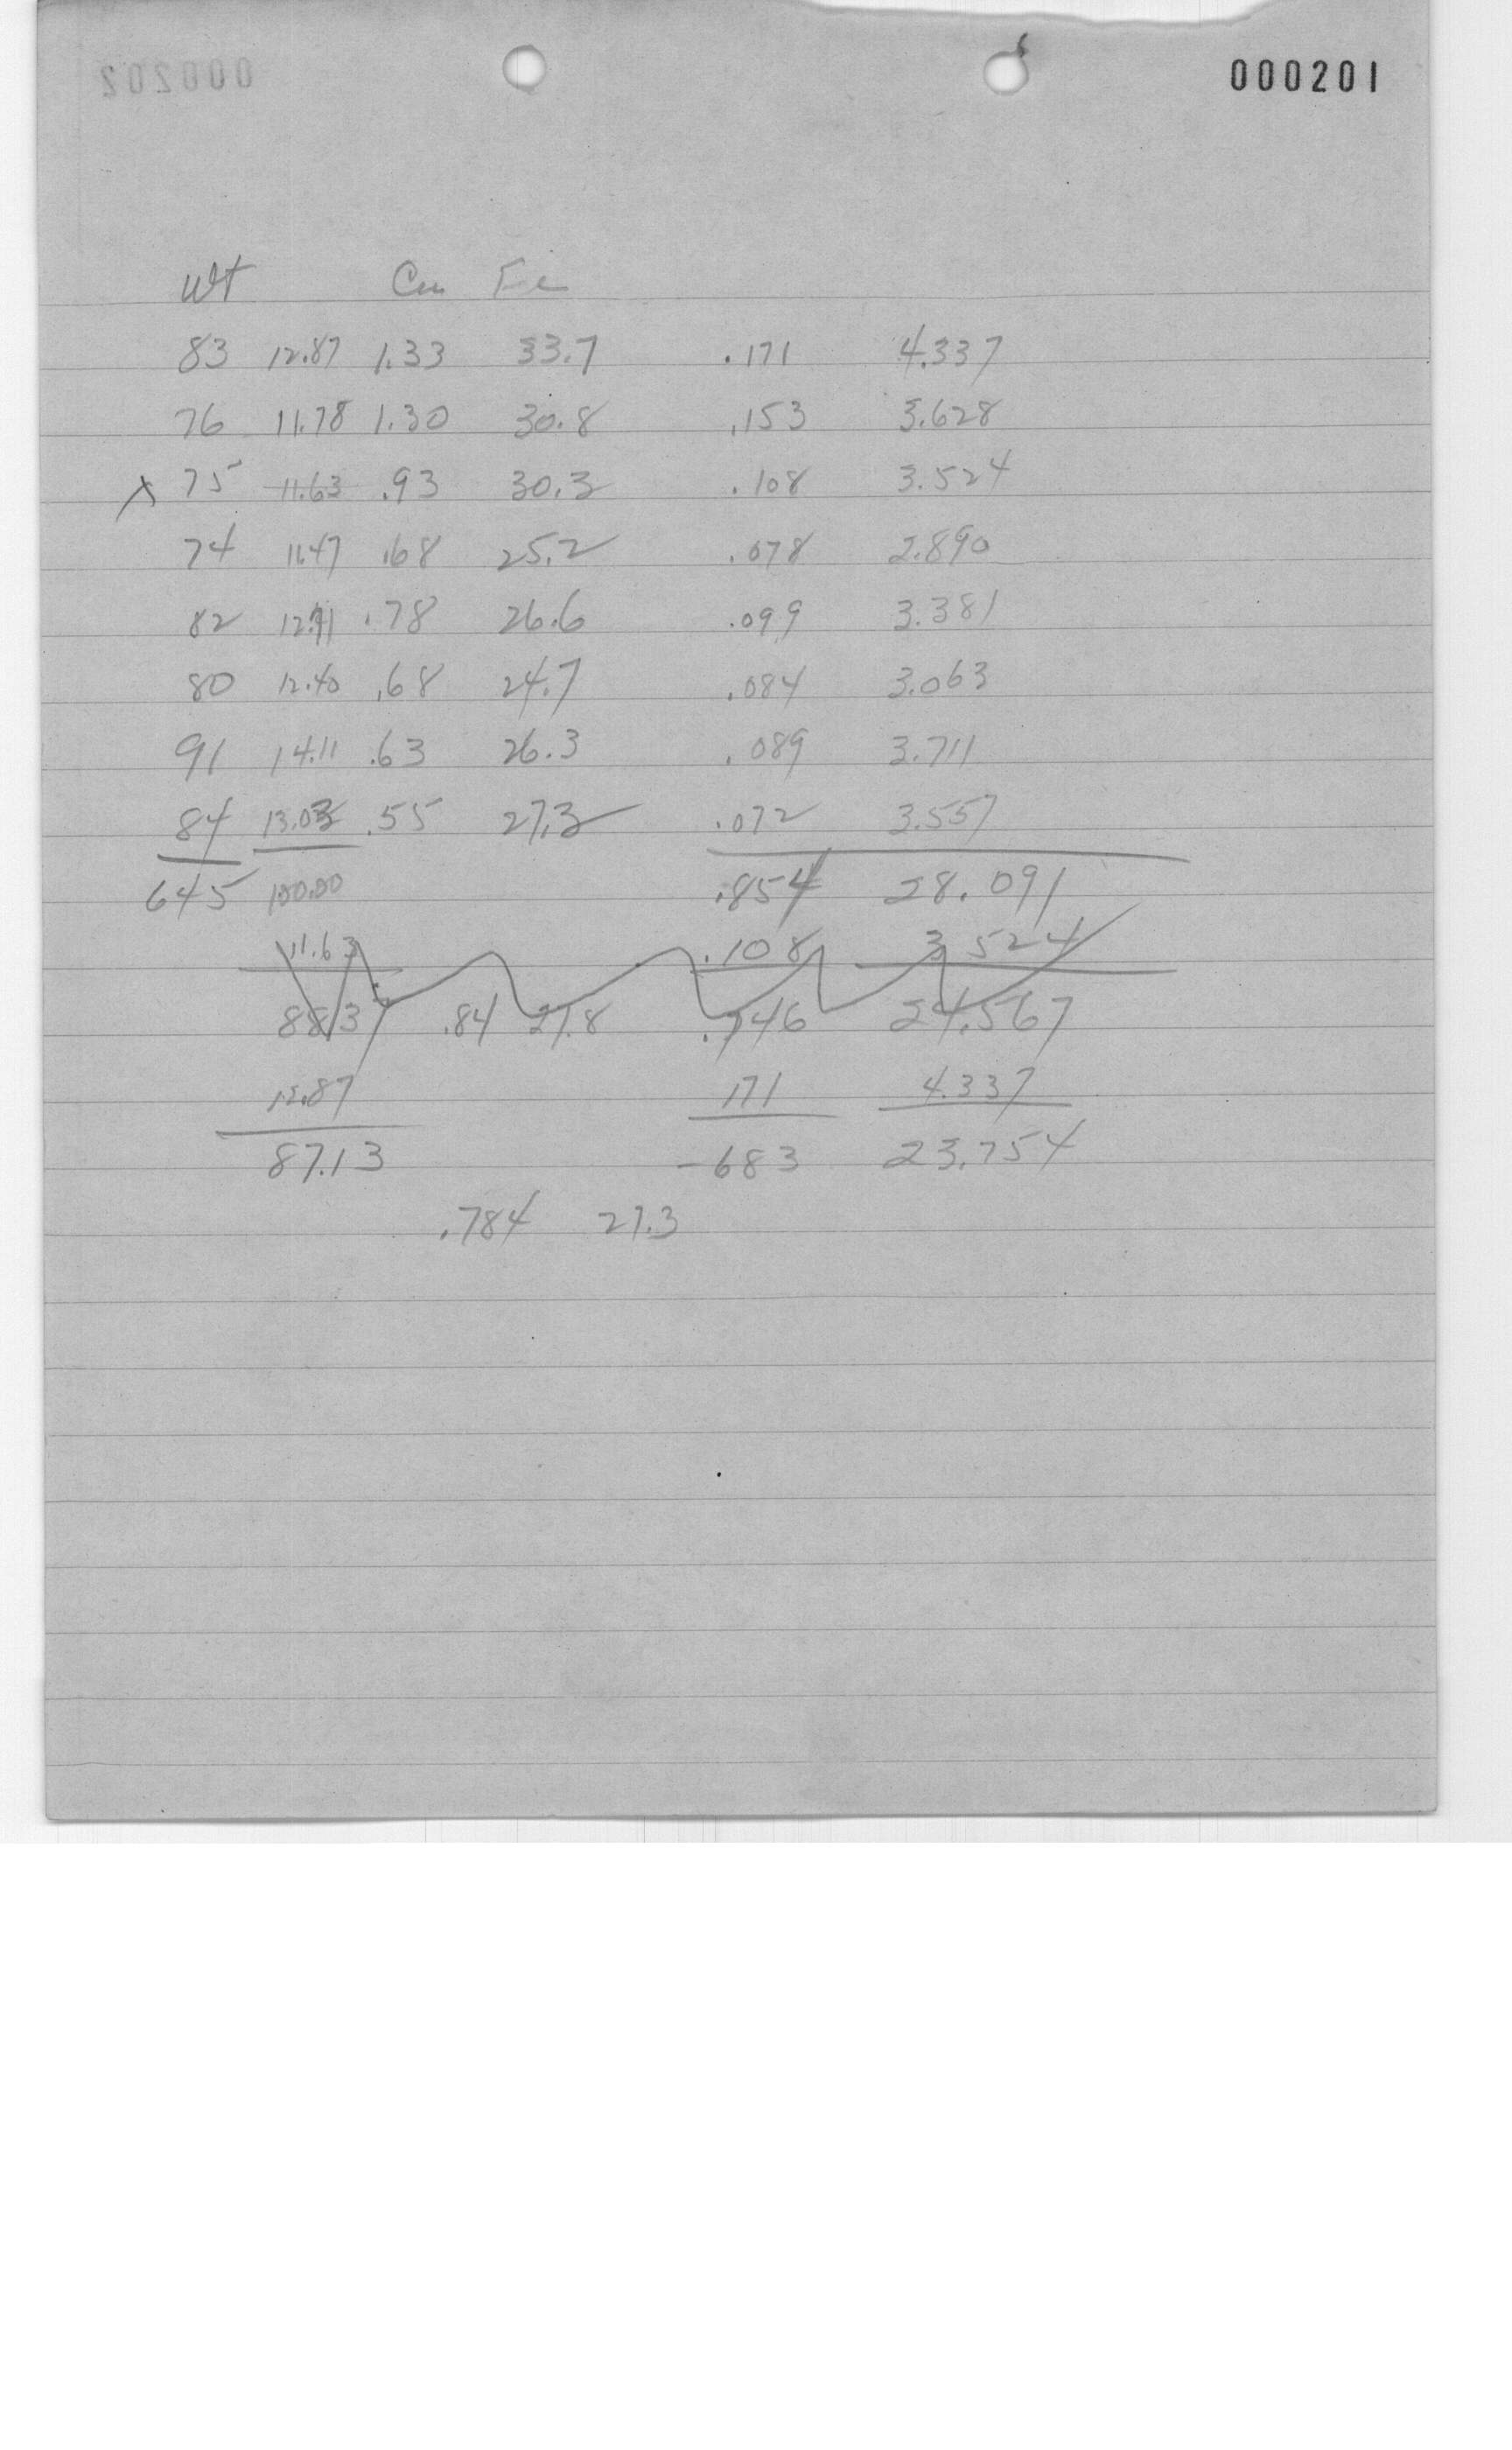 000201
Wt Cu Fe
83 12.87 1.33 33.7 .171 4.337
76 11.78 1.30 30.8 .153 3.628
x 75 11.63 .93 30.3 .108 3.524
74 11.47 .68 25.2 .078 2.890
82 12.71 .78 26.6 .099 3.381
80 12.40 .68 24.7 .084 3.063
91 14.11 .63 26.3 .089 3.711
84 13.03 .55 27.3 .072 3.557
645 100.00 .854 28.091
11.63 .108 3 524
88.37 .84 27.8 .746 24.567
12.87 171 4.337
87.13 -683 23.754
.784 27.3